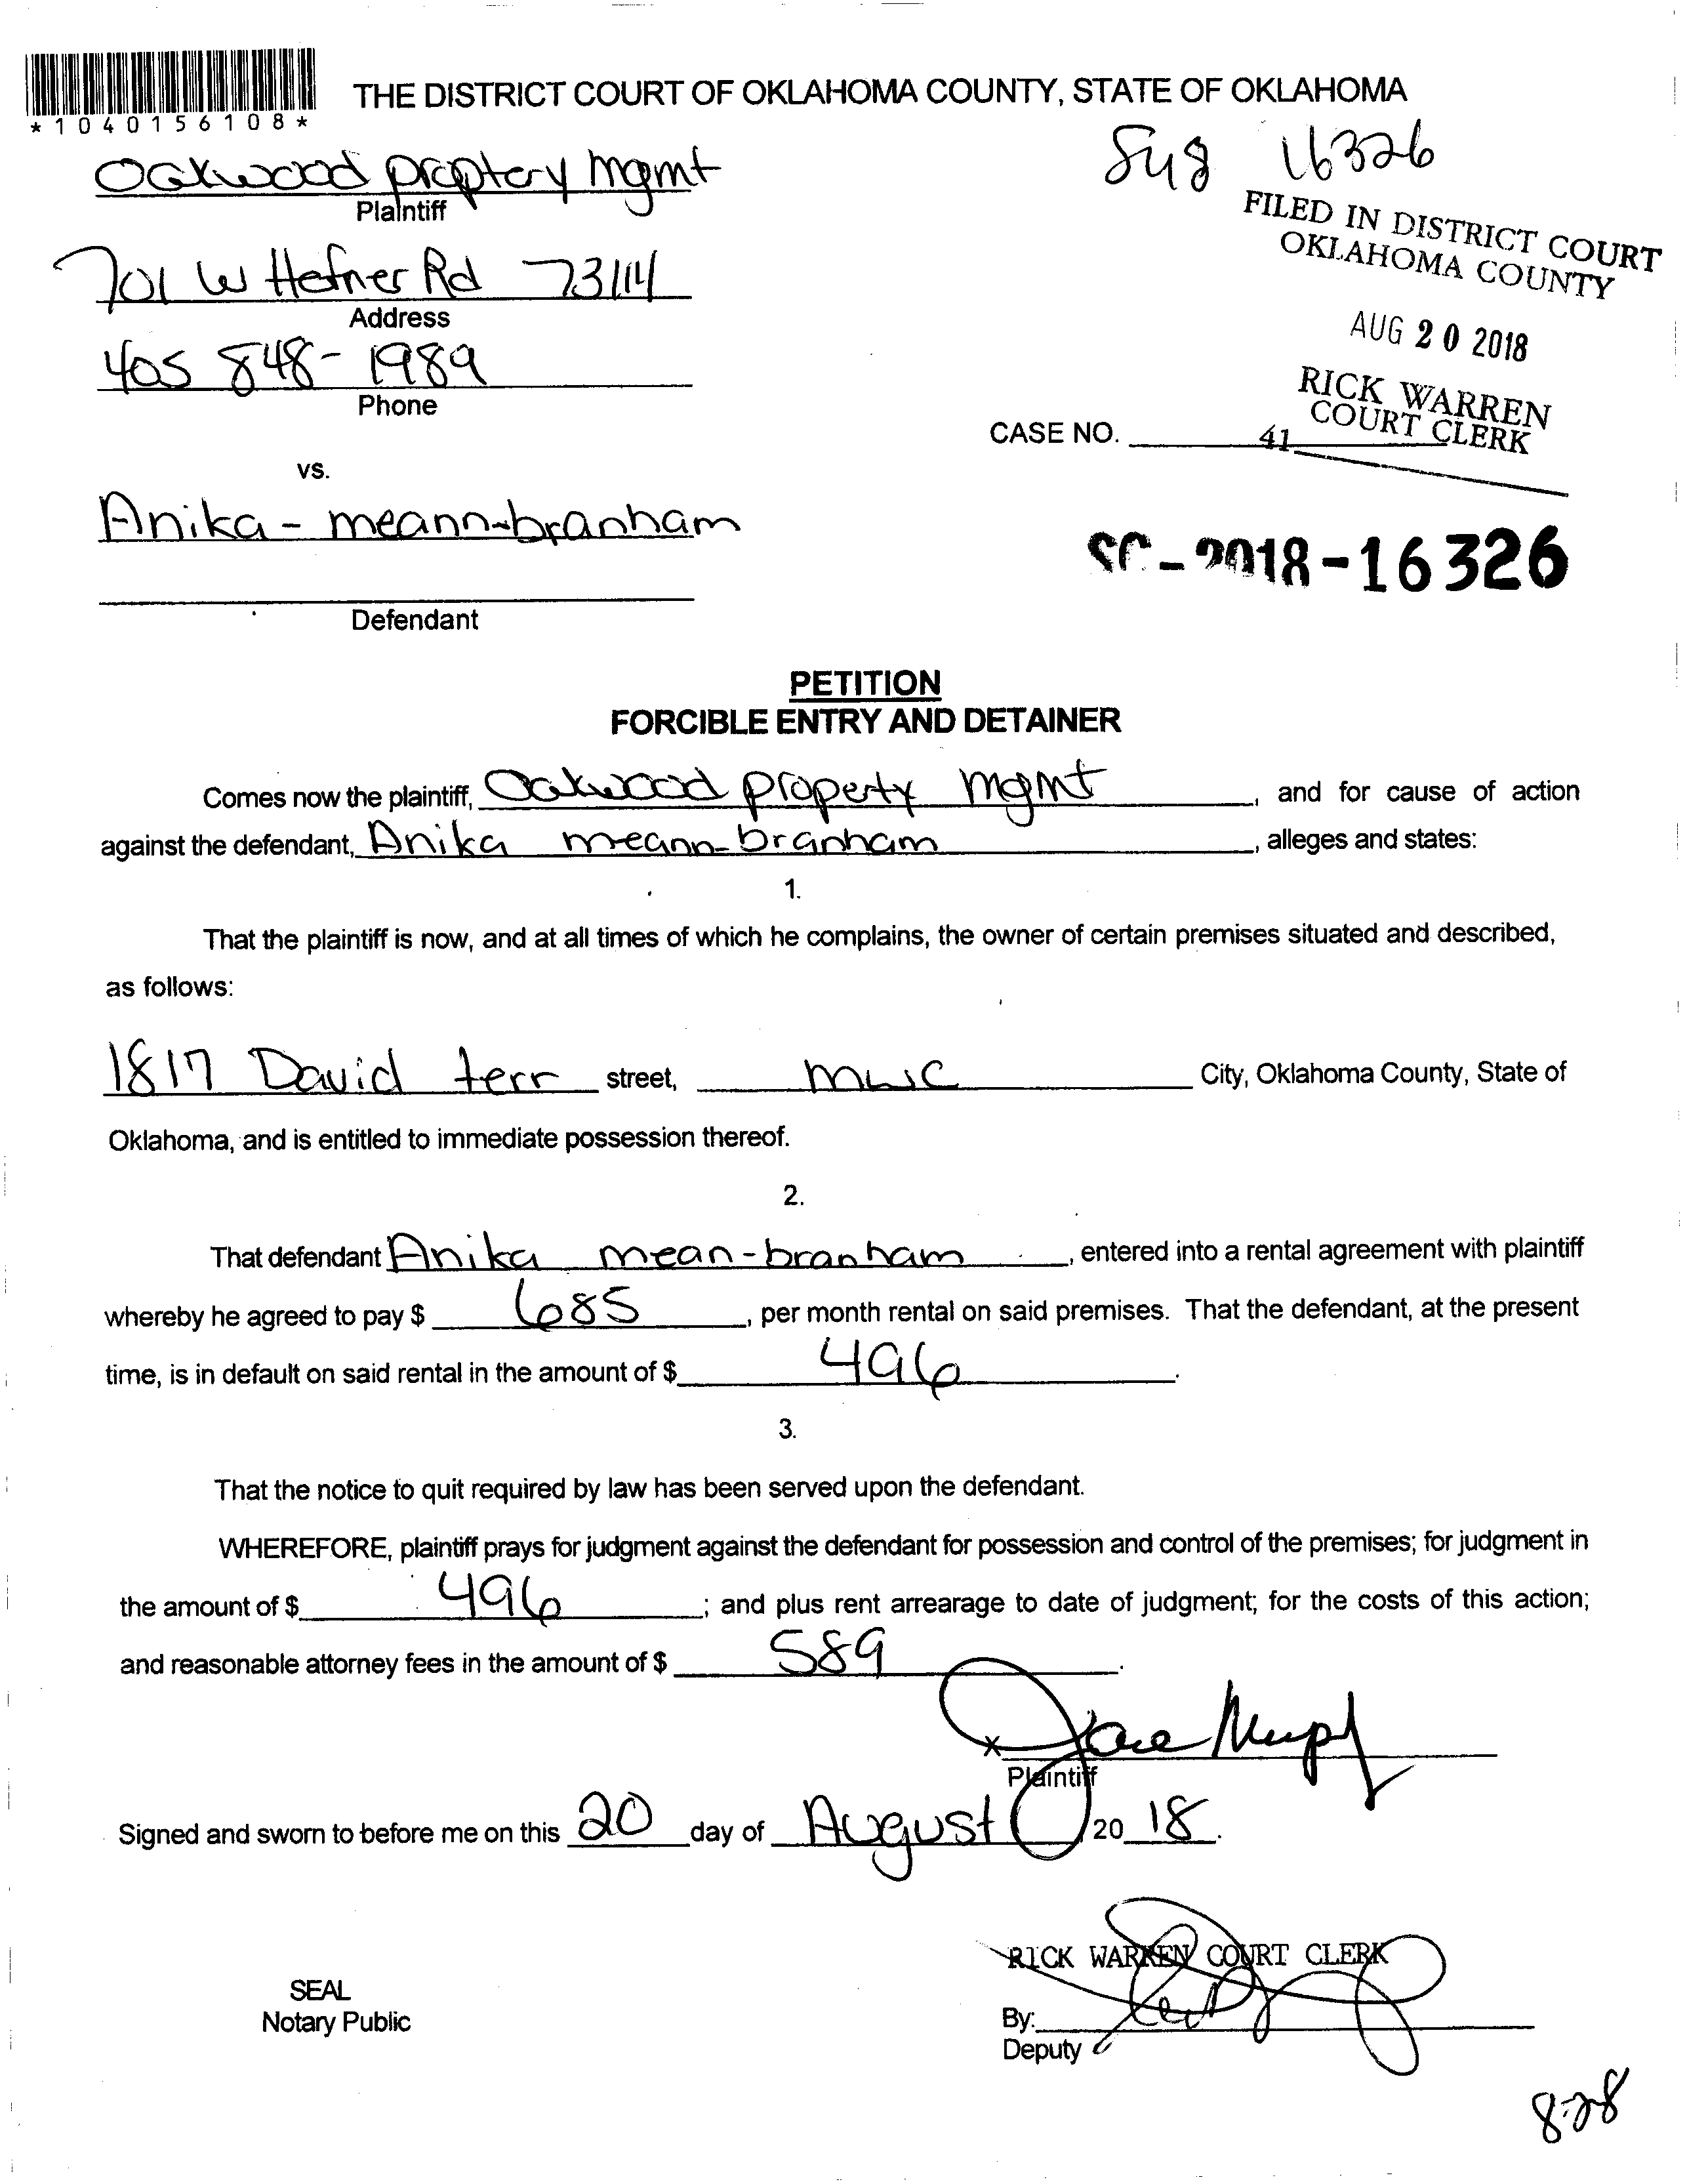 *1040156108*
THE DISTRICT COURT OF OKLAHOMA COUNTY, STATE OF OKLAHOMA
16326
Oakwood proptery mgmt
Plaintiff
FILED IN DISTRICT COURT
OKLAHOMA COUNTY
701 W Hefner Rd 73114
Address
AUG 20 2018
405 848-1989
Phone
RICK WARREN
COURT CLERK
CASE NO. 41
vs.
Anika - meann-branham
SC-2018-16326
Defendant
PETITION
FORCIBLE ENTRY AND DETAINER
Comes now the plaintiff, Oakwood property mgmt, and for cause of action
against the defendant, Anika meann-branham, alleges and states:
1.
That the plaintiff is now, and at all times of which he complains, the owner of certain premises situated and described,
as follows:
1817 David terr street, mwc City, Oklahoma County, State of
Oklahoma, and is entitled to immediate possession thereof.
2.
That defendant Anika mean-branham, entered into a rental agreement with plaintiff
whereby he agreed to pay $ 685, per month rental on said premises. That the defendant, at the present
time, is in default on said rental in the amount of $ 496.
3.
That the notice to quit required by law has been served upon the defendant.
WHEREFORE, plaintiff prays for judgment against the defendant for possession and control of the premises; for judgment in
the amount of $ 496; and plus rent arrearage to date of judgment; for the costs of this action;
and reasonable attorney fees in the amount of $ 589.
x
Plaintiff
Signed and sworn to before me on this 20 day of August, 20 18.
RICK WARREN COURT CLERK
SEAL
Notary Public
By:
Deputy
8-28